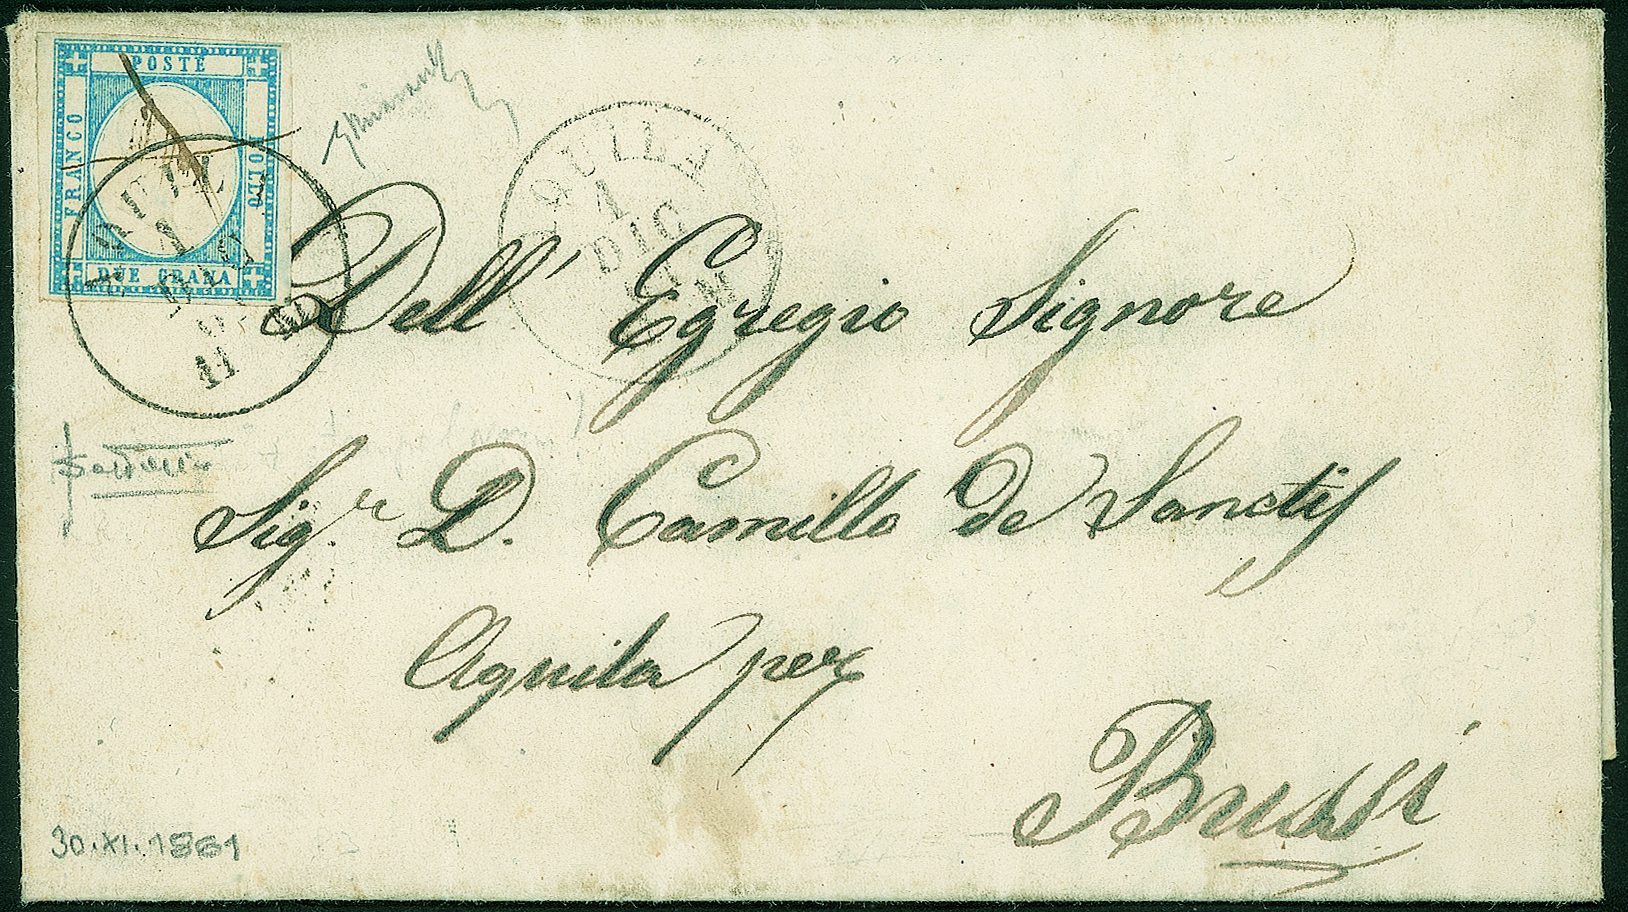 POSTE
FRANCO
BOLLO
DUE GRANA
AQUILA
1
DIC
AQUILA
1
DIC
11
Dell' Egregio Signore
Sig.r D. Camillo de Sanctis
Aquila per
Bussi
30.XI.1861